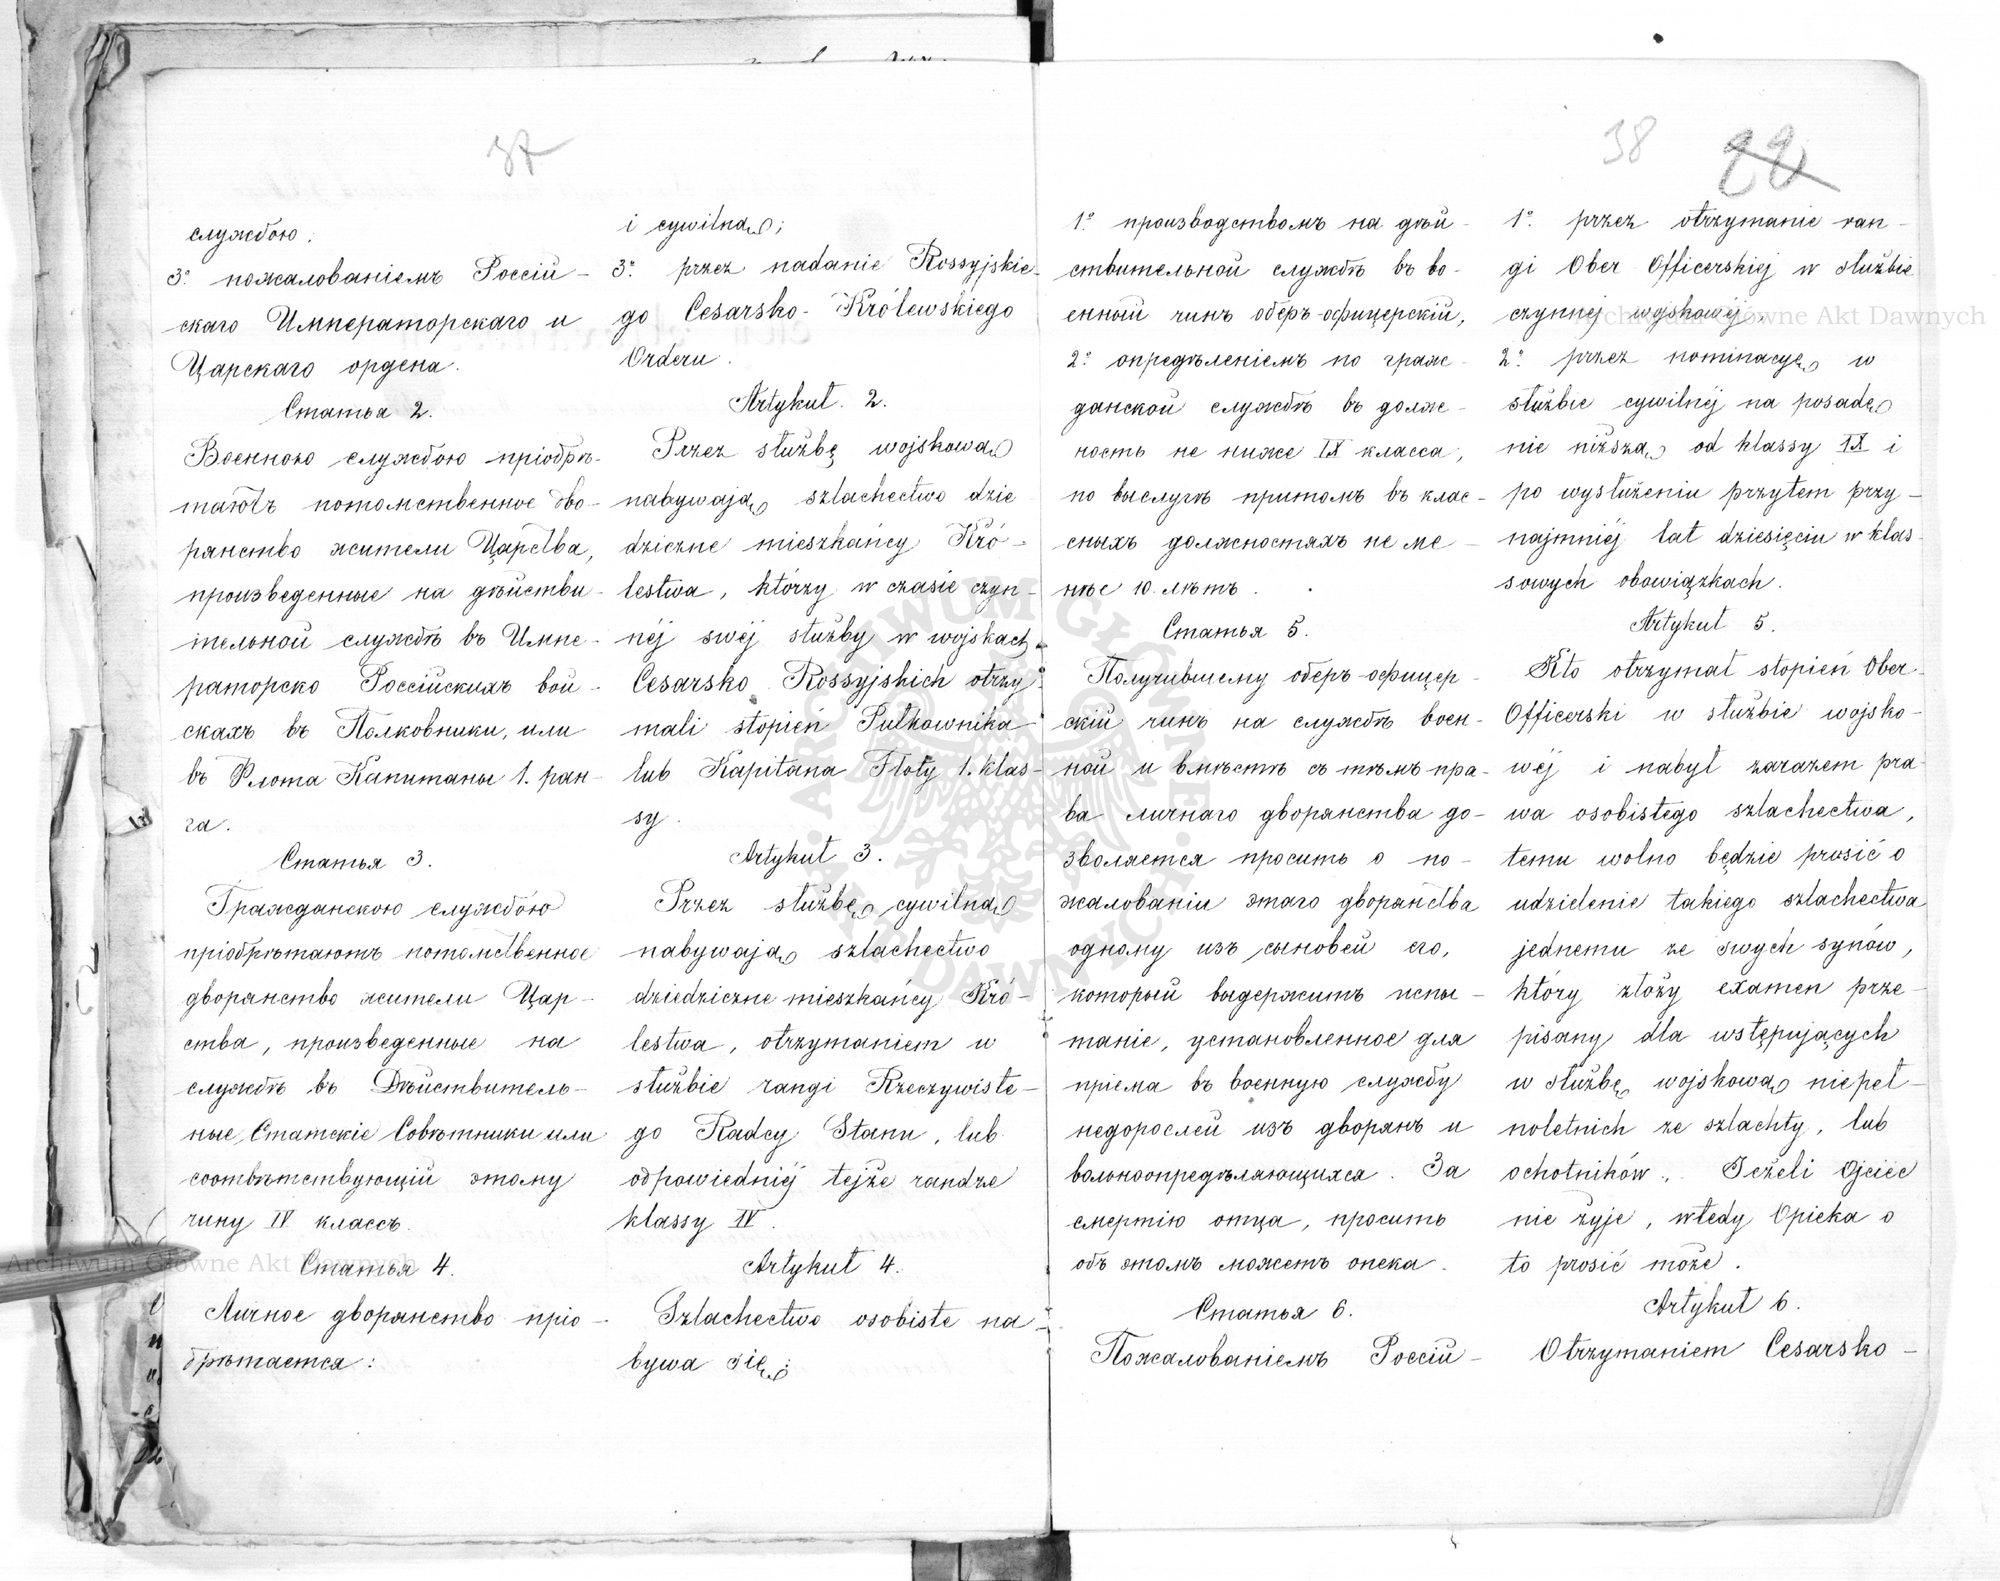 37
службою.
3º пожалованіемъ Россій-
скаго Императорскаго и
Царскаго ордена.
Статья 2.
Военною службою пріобрѣ-
таютъ потомственное дво-
рянство жители Царства,
произведенные на дѣйстви-
тельной службѣ въ Импе-
раторско Россійскихъ вой-
скахъ въ Полковники, или
въ Флота Капитаны 1. ран-
га.
Статья 3.
Гражданскою службою
пріобрѣтаютъ потомственное
дворянство жители Цар-
ства, произведенные на
службѣ въ Дѣйствитель-
ные Статскіе Совѣтники или
соотвѣтствующій этому
чину IV классъ.
Статья 4.
Личное дворянство прiо-
брѣтается:
i cywilną;
3º przez nadanie Rossyjskie-
go Cesarsko-Królewskiego
Orderu.
Artykuł. 2.
Przez służbę wojskową
nabywają szlachectwo dzie
dziczne mieszkańcy Kró-
lestwa, którzy w czasie czyn-
néj swéj służby w wojskach
Cesarsko Rossyjskich otrzy-
mali stopień Pułkownika
lub Kapitana Floty 1. klas-
sy.
Artykuł 3.
Przez służbę cywilną
nabywają szlachectwo
dziedziczne mieszkańcy Kró-
lestwa, otrzymaniem w
służbie rangi Rzeczywiste-
go Radcy Stanu, lub
odpowiedniéj tejże randze
klassy IV.
Artykuł 4.
Szlachectwo osobiste na-
bywa się:
38 22
1º производствомъ на дѣй-
ствительной службѣ въ во-
енный чинъ оберъ-офицерскій,
2º опредѣленіемъ по граж-
данской службѣ въ долж-
ность не ниже IX класса,
по выслугѣ притомъ въ клас-
сныхъ должностяхъ не ме-
нѣе 10 лѣтъ.
Статья 5.
Получившему оберъ-офицер-
скій чинъ на службѣ воен-
ной и вмѣстѣ съ тѣмъ пра-
ва личнаго дворянства до-
зволяется просить о по-
жалованіи этаго дворянства
одному изъ сыновей его,
который выдержитъ испы-
таніе, установленное для
пріема въ военную службу
недорослей изъ дворянъ и
вольноопредѣляющихся. За
смертію отца, просить
объ этомъ можетъ опека.
Статья 6.
Пожалованіемъ Россій-
1º przez otrzymanie ran-
gi Ober Officerskiej w służbie
czynnej wojskowéj.
2º przez nominacyę w
służbie cywilnéj na posadę
nie niższą od klassy IX i
po wysłużeniu przytem przy-
najmniéj lat dziesięciu w klas-
sowych obowiązkach.
Artykuł 5.
Kto otrzymał stopień Ober-
Officerski w służbie wojsko-
wéj i nabył zarazem pra-
wa osobistego szlachectwa,
temu wolno będzie prosić o
udzielenie takiego szlachectwa
jednemu ze swych synów,
który złoży examen prze-
pisany dla wstępujących
w służbę wojskową niepeł-
noletnich ze szlachty, lub
ochotników. Jeżeli Ojciec
nie żyje, wtedy Opieka o
to prosić może.
Artykuł 6.
Otrzymaniem Cesarsko-
Archiwum Główne Akt Dawnych
Archiwum Główne Akt Dawnych
ARCHIWUM GŁÓWNE AKT DAWNYCH